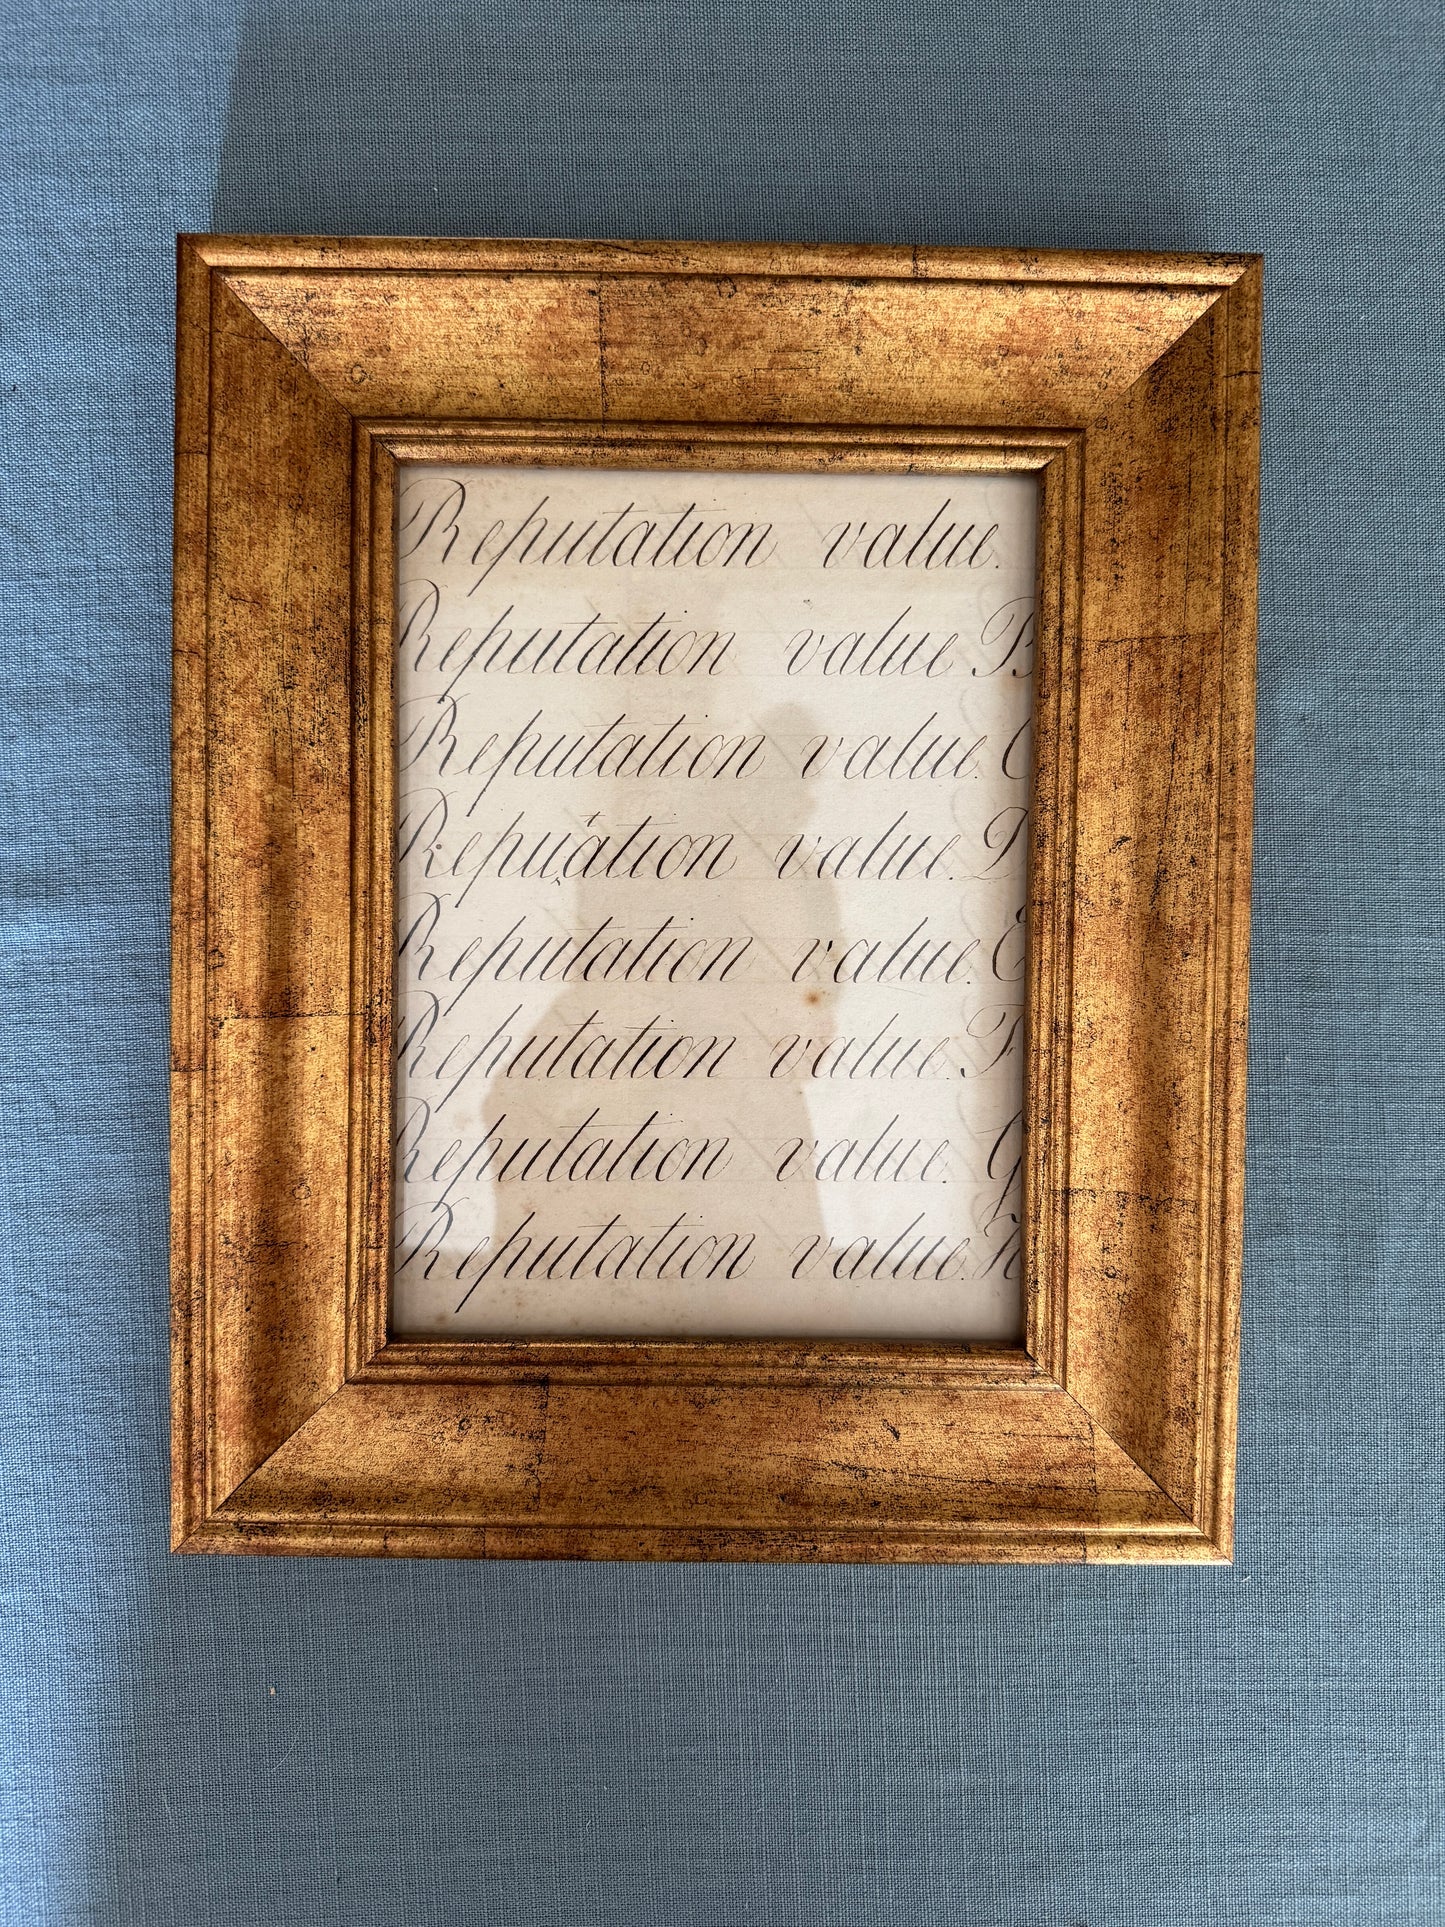 Reputation value.
Reputation value. B
Reputation value. C
Repuation value. D
Reputation value. E
Reputation value. F
Reputation value. G
Reputation value. H